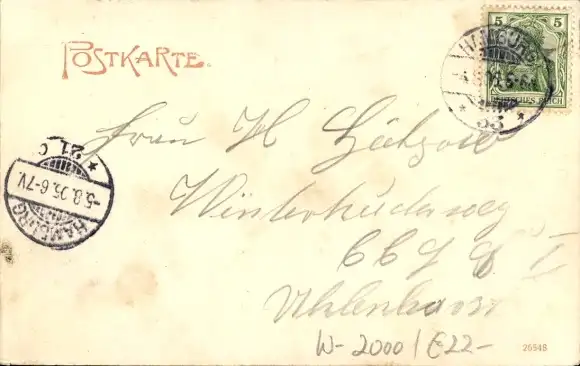 POSTKARTE.
5 5
DEUTSCHES REICH
HAMBURG
* 33 *
Frau H
Winterhuderweg
Uhlenhorst
HAMBURG
-5.8.05.6-7V.
* 21 c
W-2000 / E22-
26548